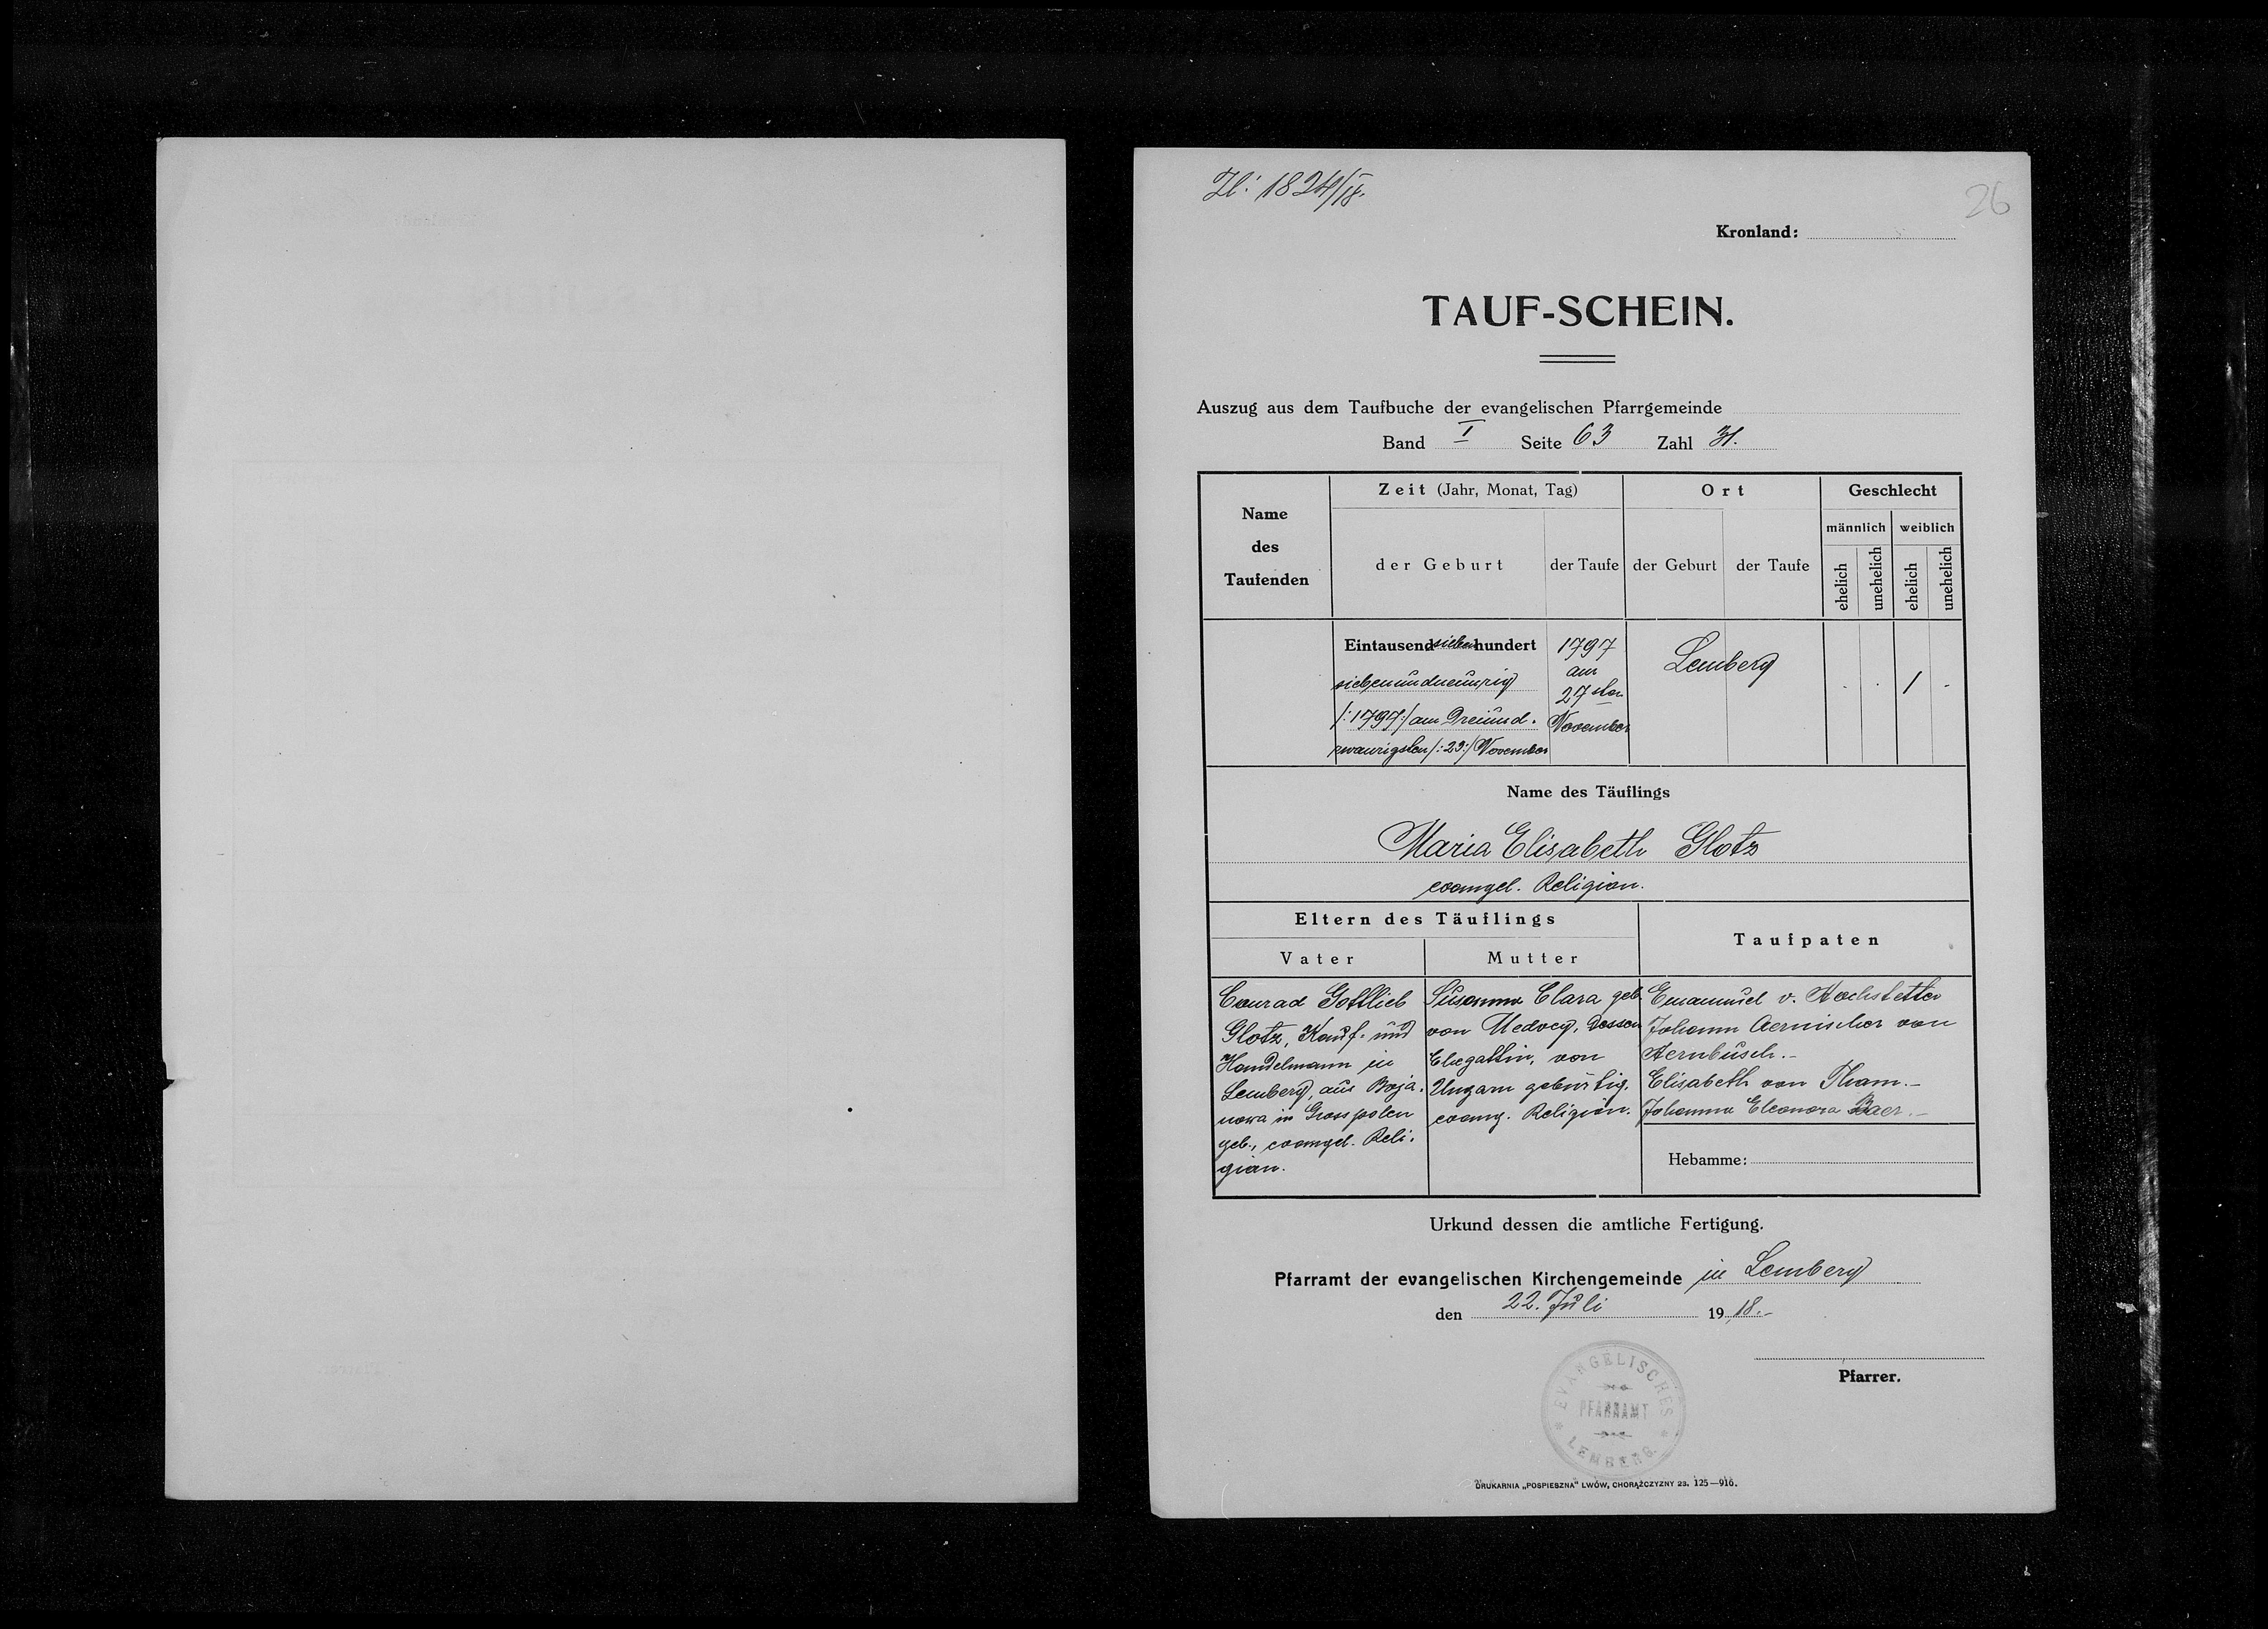 Zl: 1824/18.
26
Kronland:
TAUF-SCHEIN.
Auszug aus dem Taufbuche der evangelischen Pfarrgemeinde
Band I Seite 63 Zahl 31.
Name des Taufenden
Zeit (Jahr, Monat, Tag)
Ort
Geschlecht
der Geburt
der Taufe
der Geburt
der Taufe
männlich
weiblich
ehelich
unehelich
ehelich
unehelich
Eintausend siebenhundert
siebenundneunzig
/:1797:/ am Dreiund-
zwanzigsten /:23:/ November
1797
am
27sten
November
Lemberg
. . 1 .
Name des Täuflings
Maria Elisabeth Glotz
evangel. Religion.
Eltern des Täuflings
Taufpaten
Vater
Mutter
Conrad Gottlieb
Glotz, Kauf- und
Handelmann in
Lemberg, aus Boja-
nowa in Grosspolen
geb., evangel. Reli-
gion.
Susanna Clara geb.
von Medvey, dessen
Ehegattin, von
Ungarn gebürtig,
evang. Religion.
Emanuel v. Hochstetter
Johann Aernischer von
Aernbusch.-
Elisabeth von Tham.-
Johanna Eleonora Baer.-
Hebamme:
Urkund dessen die amtliche Fertigung.
Pfarramt der evangelischen Kirchengemeinde in Lemberg
den 22. Juli 1918.-
Pfarrer.
EVANGELISCHES
PFARRAMT
LEMBERG
DRUKARNIA „POSPIESZNA" LWÓW, CHORĄŻCZYZNY 23. 125—916.